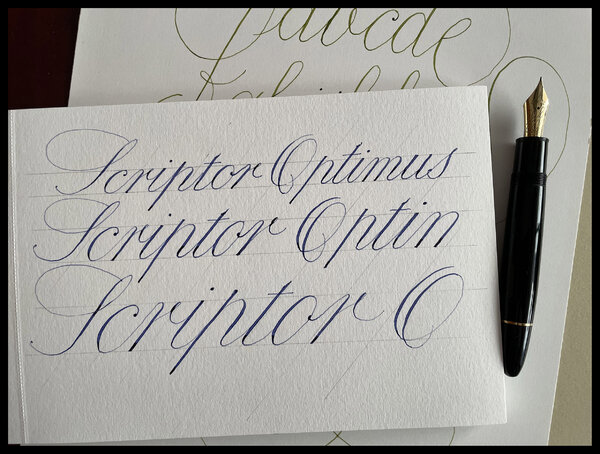 abcde
Scriptor Optimus
Scriptor Optin
Scriptor O